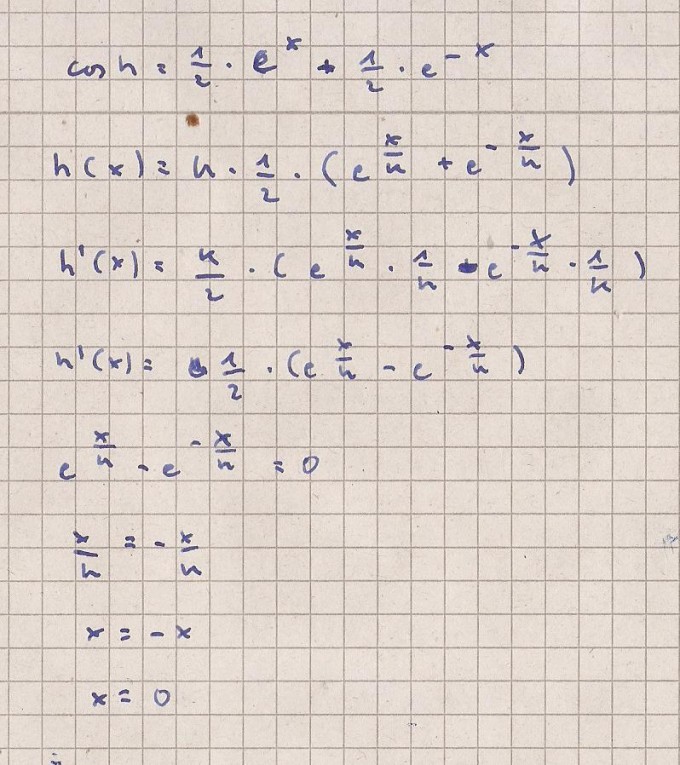 cos h = 1/2 · e^x + 1/2 · e^-x
h(x) = k · 1/2 · (e^(x/k) + e^(-x/k))
h'(x) = k/2 · (e^(x/k) · 1/k - e^(-x/k) · 1/k)
h'(x) = 1/2 · (e^(x/k) - e^(-x/k))
e^(x/k) - e^(-x/k) = 0
x/k = - x/k
x = - x
x = 0